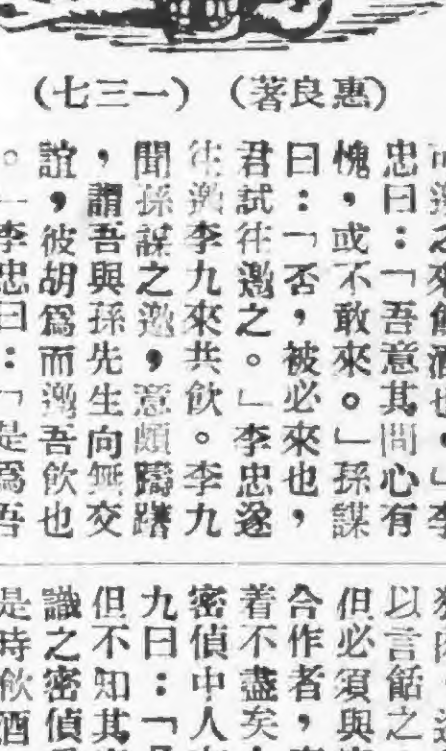 （著良惠）（七三一）
之來飲酒也。」李
忠曰：「吾意其問心有
愧，或不敢來。」孫謀
曰：「否，被必來也，
君試往邀之。」李忠遂
往邀李九來共飲。李九
聞孫謀之邀，意頗躊躇
，謂吾與孫先生向無交
誼，彼胡爲而邀吾飲也
。」李忠曰：「是爲吾
以言餂之
但必須與
合作者，
着不盡矣
密偵中人
九曰：「
但不知其
識之密偵
是時飲酒